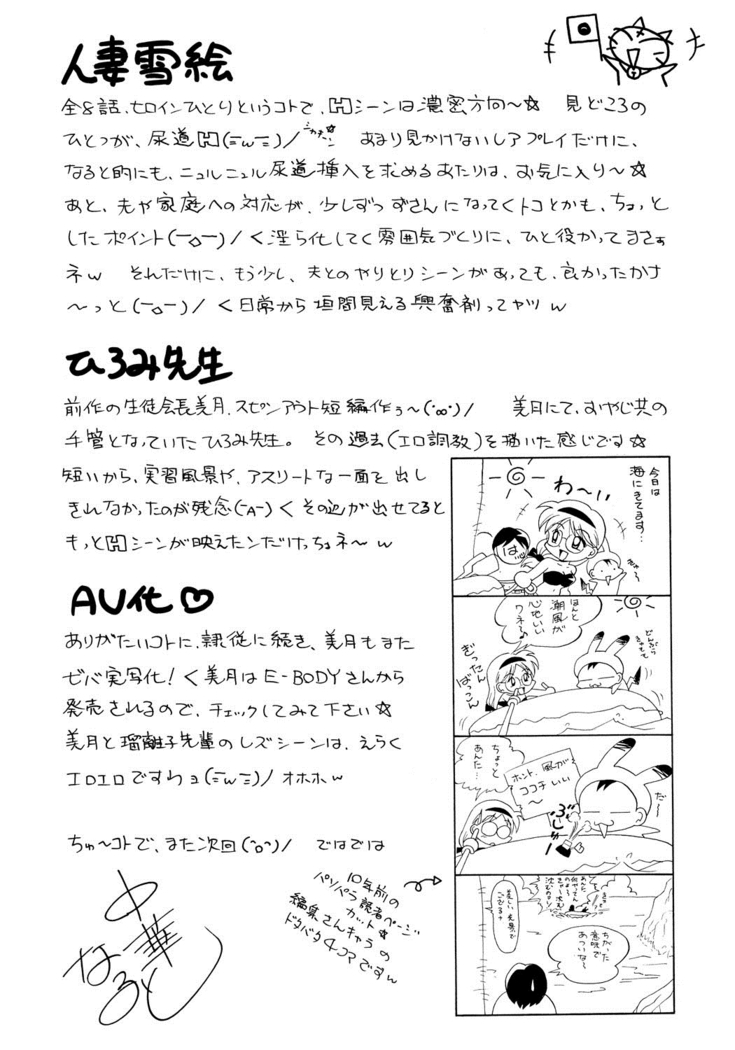 人妻雪絵
全8話、ヒロインひとりというコトで、Hシーンは濃密方向〜☆ 見どころの
ひとつが、尿道H(=w=)/ あまり見かけないレアプレイだけに、
なると的にも、ニュルニュル尿道挿入を求めるあたりは、お気に入り〜☆
あと、夫や家庭への対応が、少しずつずさんになってくトコとかも、ちょっと
したポイント(ーoー)/く淫ら化してく雰囲気づくりに、ひと役かってまさぁ
ネw それだけに、もう少し、夫とのやりとりシーンがあっても、良かったかナ
〜っと(ーoー)/く日常から垣間見える興奮剤ってヤツw
ひろみ先生
前作の生徒会長美月、スピンアウト短編作ぅ〜(°∞°)/ 美月にて、おやじ共の
手管となっていたひろみ先生。その過去(エロ調教)を描いた感じです☆
短いから、実習風景や、アスリートな一面を出し
きれなかったのが残念(ーAー)くその辺が出せてると
もっとHシーンが映えたンだけっちょネ〜w
AV化♡
ありがたいコトに、隷従に続き、美月もまた
ゼバ実写化!く美月はE-BODYさんから
発売されるので、チェックしてみて下さい☆
美月と瑠離子先輩のレズシーンは、えらく
エロエロですわョ(=w=)/オホホw
ちゅ〜コトで、また次回(^o^)/ ではでは
中華
なると
10年前の
パソパラ読者ページ
カット☆
編集さんキャラの
ドタバタ4コマですw
今日は
海にきてます…
わ〜い
ほんと
潮風が
心地いい
ワネ〜♪
ぎったん
ばっこん
ちょっと
あんた…
ホント、風が
ココチいい
〜
だ〜
美しい光景で
ござるナ
ちがった
意味で
あついな〜